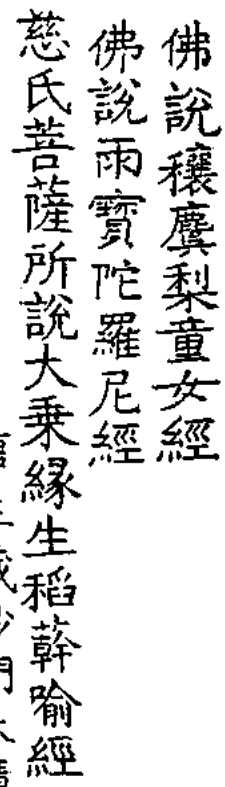 佛說穰麌梨童女經
佛說雨寶陀羅尼經
慈氏菩薩所說大乗緣生稻𦼮喻經